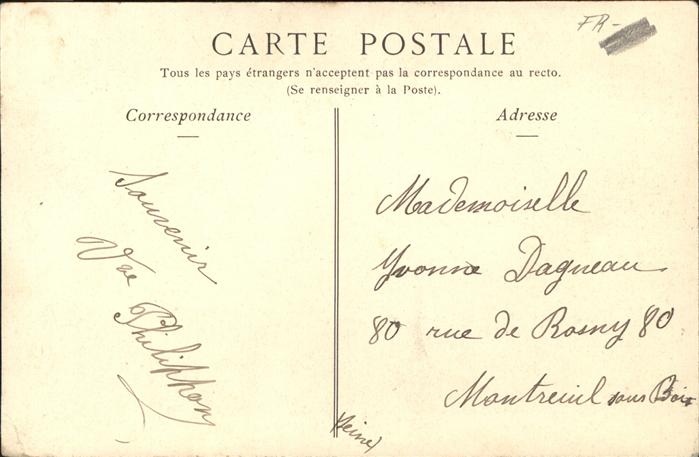 FR-
CARTE POSTALE
Tous les pays étrangers n'acceptent pas la correspondance au recto.
(Se renseigner à la Poste).
Correspondance
Souvenir
Vve Philiphon
Adresse
Mademoiselle
Yvonne Dagneau
80 rue de Rosny 80
Montreuil sous Bois
(Seine)